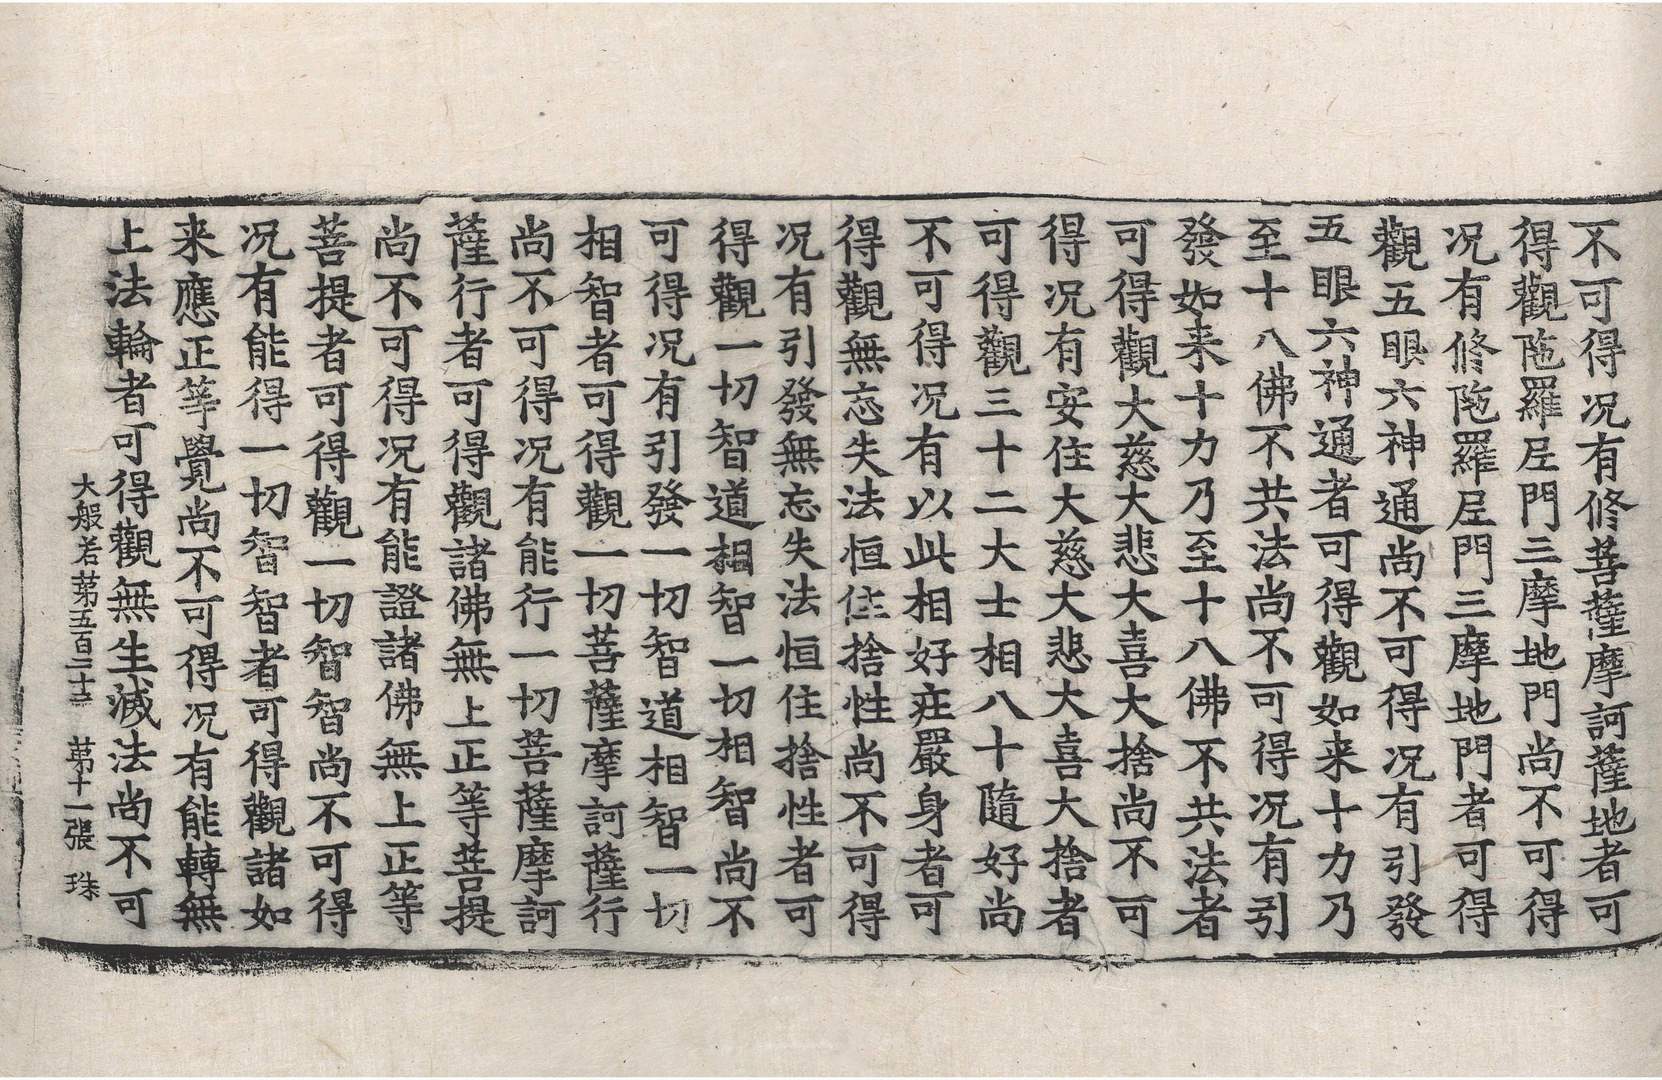 不可得况有修菩薩摩訶薩地者可
得觀陁羅尼門三摩地門尚不可得
况有修陁羅尼門三摩地門者可得
觀五眼六神通尚不可得况有引發
五眼六神通者可得觀如来十力乃
至十八佛不共法尚不可得况有引
發如来十力乃至十八佛不共法者
可得觀大慈大悲大喜大捨尚不可
得况有安住大慈大悲大喜大捨者
可得觀三十二大士相八十隨好尚
不可得况有以此相好莊嚴身者可
得觀無忘失法恒住捨性尚不可得
况有引發無忘失法恒住捨性者可
得觀一切智道相智一切相智尚不
可得况有引發一切智道相智一切
相智者可得觀一切菩薩摩訶薩行
尚不可得况有能行一切菩薩摩訶
薩行者可得觀諸佛無上正等菩提
尚不可得况有能證諸佛無上正等
菩提者可得觀一切智智尚不可得
况有能得一切智智者可得觀諸如
来應正等覺尚不可得况有能轉無
上法輪者可得觀無生滅法尚不可
大般若苐五百二十三 苐十一張 珠